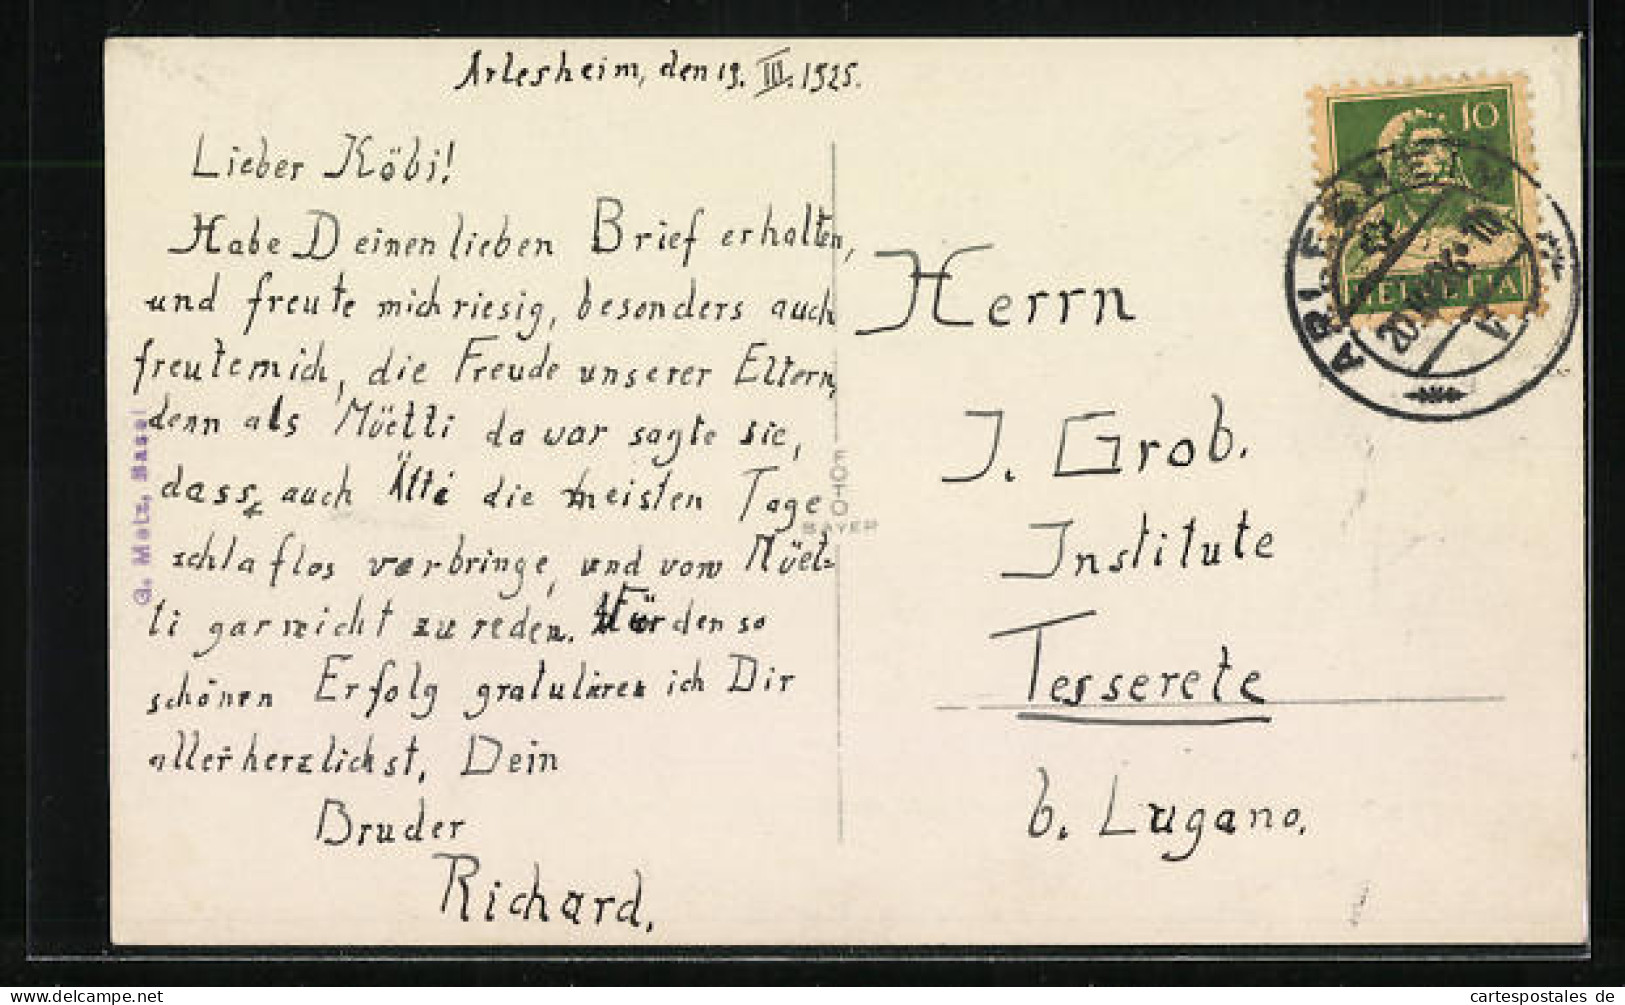 Arlesheim, den 19. III. 1925.
Lieber Köbi!
Habe Deinen lieben Brief erhalten,
und freute mich riesig, besonders auch
freute mich, die Freude unserer Eltern,
denn als Müetti da war sagte sie,
dass auch Ätti die meisten Tage
schlaflos verbringe, und vom Müet=
ti gar nicht zu reden. Für den so
schönen Erfolg gratuliere ich Dir
allerherzlichst, Dein
Bruder
Richard.
Herrn
J. Grob.
Institute
Tesserete
b. Lugano.
G. Metz, Basel
FOTO
BAYER
10
HELVETIA
ARLESHEIM
cartespostales de